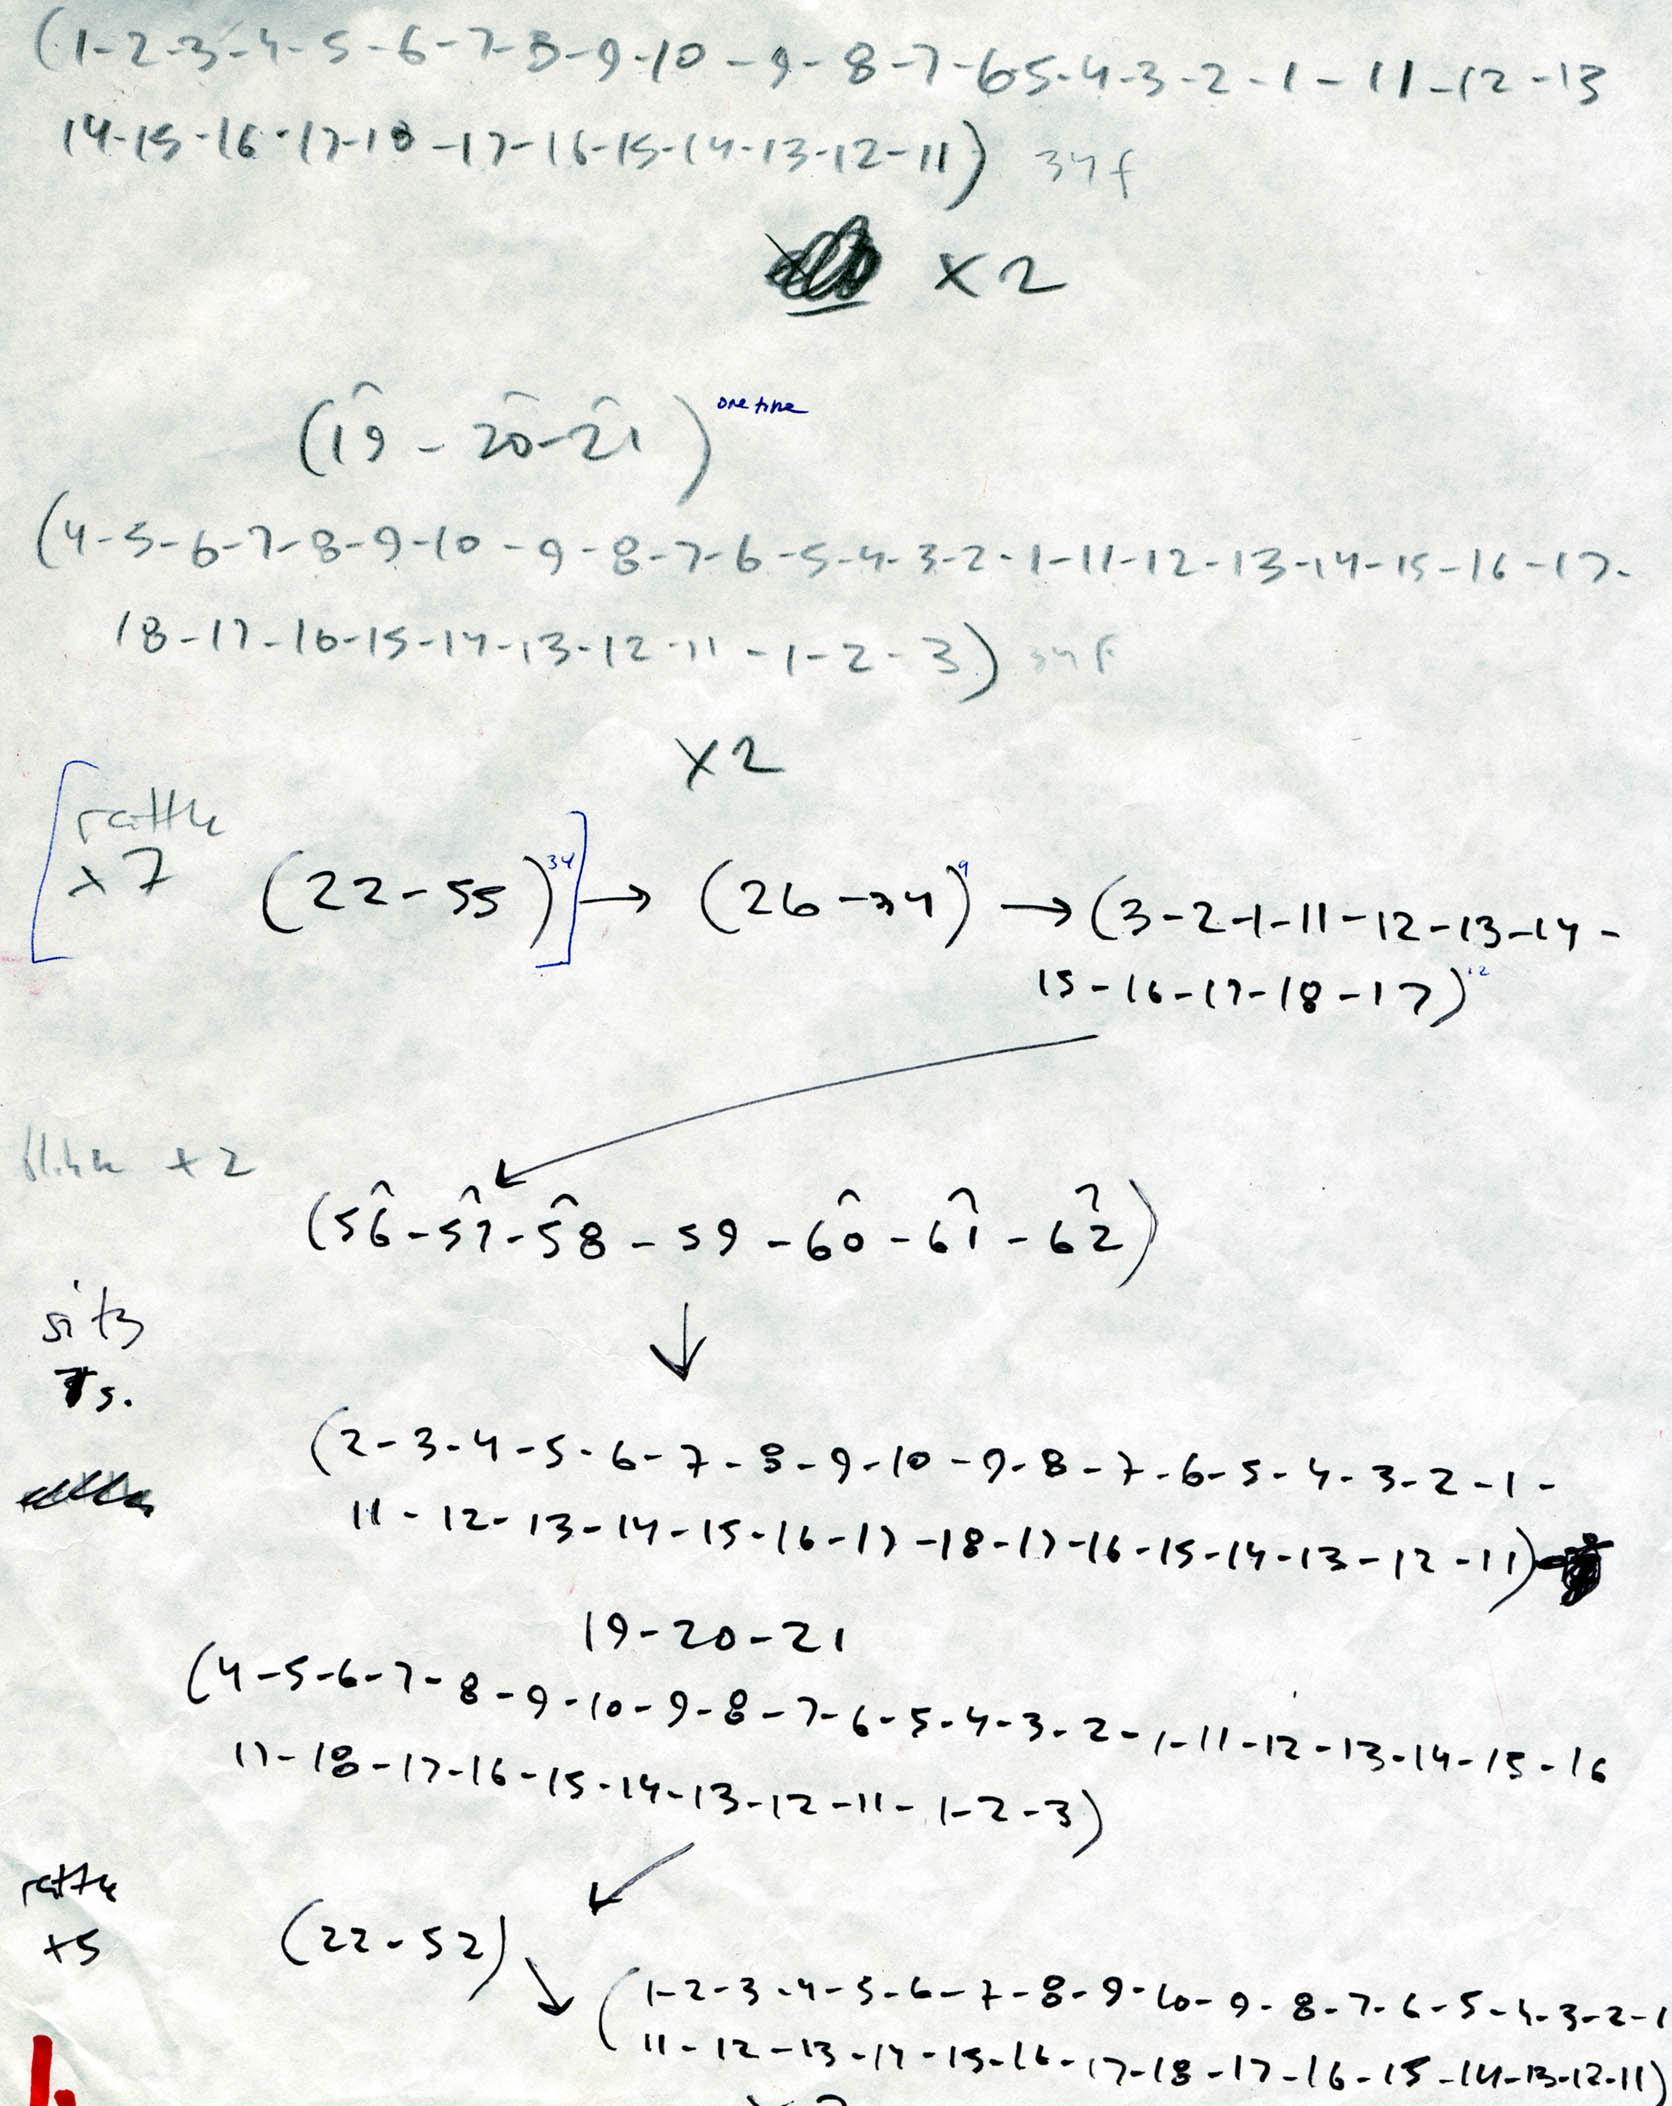 (1-2-3-4-5-6-7-8-9-10-9-8-7-6-5-4-3-2-1-11-12-13
14-15-16-17-18-17-16-15-14-13-12-11) 34f
x2
(19-20-21) one time
(4-5-6-7-8-9-10-9-8-7-6-5-4-3-2-1-11-12-13-14-15-16-17-
18-17-16-15-14-13-12-11-1-2-3) 34f
x2
[rattle
x7 (22-55)34] → (26-34)9 → (3-2-1-11-12-13-14-
15-16-17-18-17)12
blink x2
(56-57-58-59-60-61-62)
sits
s.
(2-3-4-5-6-7-8-9-10-9-8-7-6-5-4-3-2-1-
11-12-13-14-15-16-17-18-17-16-15-14-13-12-11)
19-20-21
(4-5-6-7-8-9-10-9-8-7-6-5-4-3-2-1-11-12-13-14-15-16
17-18-17-16-15-14-13-12-11-1-2-3)
rattle
x5 (22-52)
(1-2-3-4-5-6-7-8-9-10-9-8-7-6-5-4-3-2-1
11-12-13-14-15-16-17-18-17-16-15-14-13-12-11)